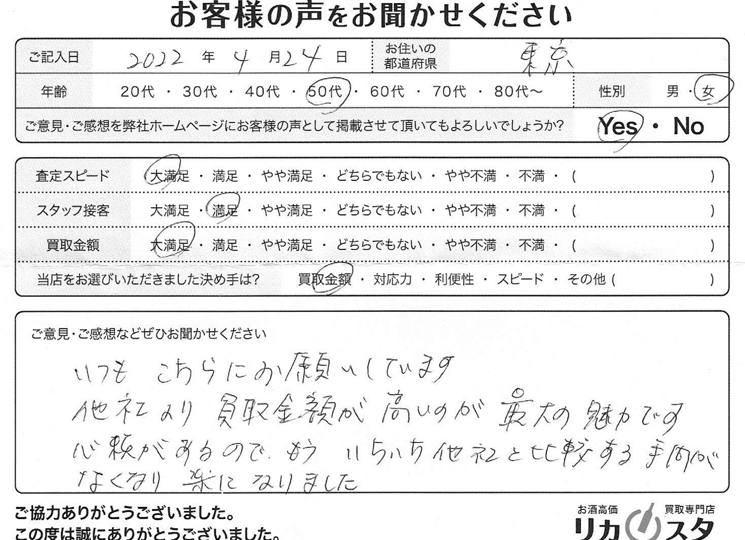 お客様の声をお聞かせください
ご記入日 2022 年 4 月 24 日 お住いの都道府県 東京
年齢 20代 ・ 30代 ・ 40代 ・ 50代 ・ 60代 ・ 70代 ・ 80代～ 性別 男 ・ 女
ご意見・ご感想を弊社ホームページにお客様の声として掲載させて頂いてもよろしいでしょうか? Yes ・ No
査定スピード 大満足 ・ 満足 ・ やや満足 ・ どちらでもない ・ やや不満 ・ 不満 ・ ( )
スタッフ接客 大満足 ・ 満足 ・ やや満足 ・ どちらでもない ・ やや不満 ・ 不満 ・ ( )
買取金額 大満足 ・ 満足 ・ やや満足 ・ どちらでもない ・ やや不満 ・ 不満 ・ ( )
当店をお選びいただきました決め手は? 買取金額 ・ 対応力 ・ 利便性 ・ スピード ・ その他 ( )
ご意見・ご感想などぜひお聞かせください
いつも こちらにお願いしています
他社より 買取金額が 高いのが 最大の 魅力です
信頼があるので、もう いちいち他社と比較する手間が
なくなり 楽になりました
ご協力ありがとうございました。
この度は誠にありがとうございました。
お酒高価 買取専門店
リカスタ